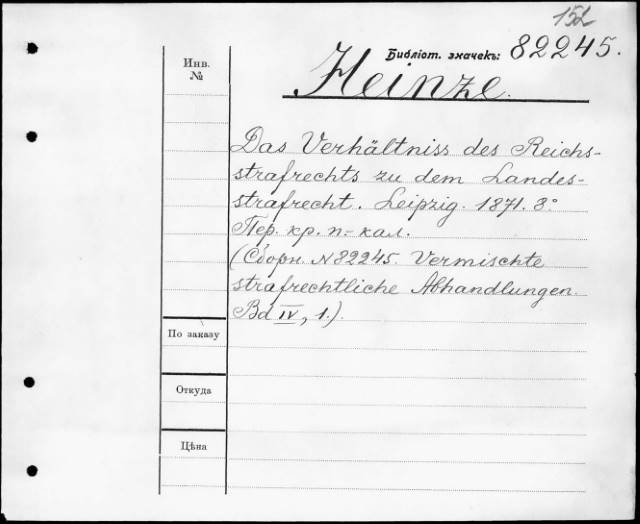 152
Библіот. значекъ: 82245.
Инв.
№
Heinze.
Das Verhältniss des Reichs-
strafrechts zu dem Landes-
strafrecht. Leipzig. 1871. 8º
Пер. кр. п.-кал.
(Сборн. N 82245. Vermischte
strafrechtliche Abhandlungen.
Bd IV, 1.).
По заказу
Откуда
Цѣна